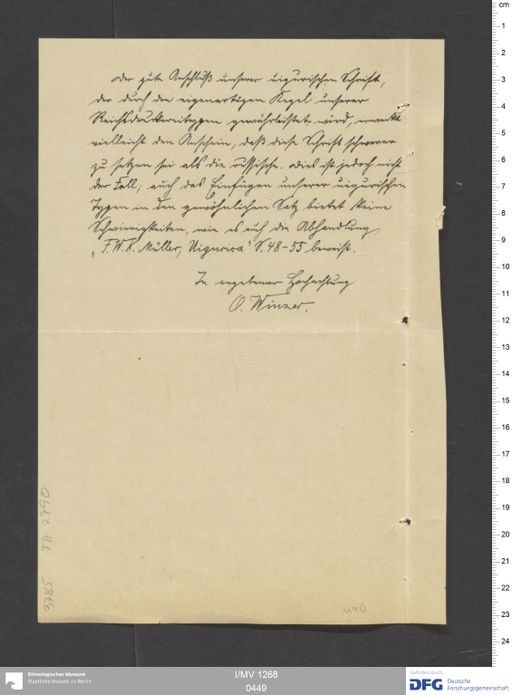 Der gute Anschluß unserer uigurischen Schrift,
der durch den eigenartigen Kegel unserer
Reichsdruckereitypen gewährleistet wird, erweckt
vielleicht den Anschein, daß diese Schrift schwerer
zu setzen sei als die russische. Dies ist jedoch nicht
der Fall, auch das Einfügen unserer uigurischen
Typen in den gewöhnlichen Satz bietet keine
Schwierigkeiten, wie es auch die Abhandlung
„F. W. K. Müller, Uigurica“ S. 48-55 beweist.
In ergebener Hochachtung
O. Winzer.
TA 2790
3785
Ethnologisches Museum
Staatliche Museen zu Berlin
I/MV 1268
0449
Gefördert durch
DFG Deutsche
Forschungsgemeinschaft
cm
1
2
3
4
5
6
7
8
9
10
11
12
13
14
15
16
17
18
19
20
21
22
23
24